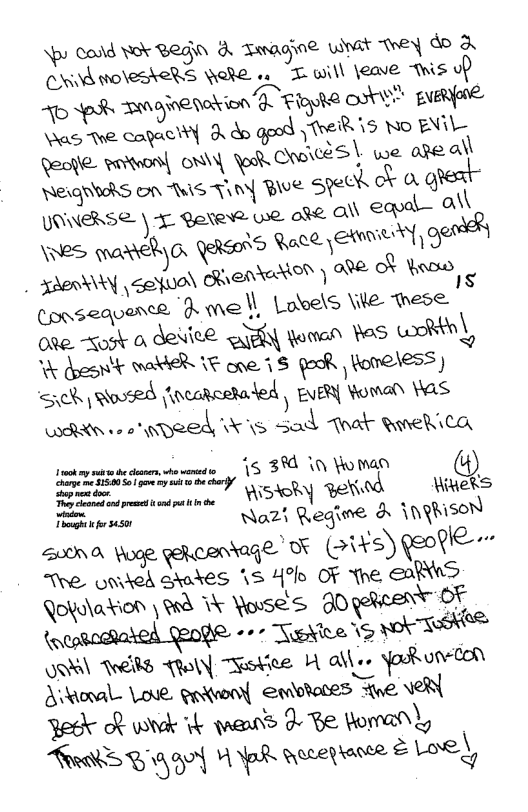 You Could Not Begin 2 Imagine what They do 2
Childmolesters Here .. I will leave This up
To your Imaginenation 2 Figure out!!!! EVERYone
Has The capacity 2 do good, Their is NO EVIL
people Anthony ONLY poor Choice's! we are all
Neighbors on This Tiny Blue speck of a great
universe, I Believe we are all equal all
lives matter, a person's Race, ethnicity, gender,
Identity, sexual orientation, are of know
15
Consequence 2 me!! Labels like These
are Just a device EVERY Human Has worth!
it doesn't matter if one is poor, Homeless,
sick, Abused, incarcerated, EVERY Human Has
worth... inDeed it is sad That America
I took my suit to the cleaners, who wanted to
charge me $15:00 So I gave my suit to the charity
shop next door.
They cleaned and pressed it and put it in the
window.
I bought it for $4.50!
is 3rd in Human (4)
History Behind Hitler's
Nazi Regime 2 inprison
such a Huge percentage OF (→it's) people...
The united states is 4% OF The earths
Population, And it House's 20 percent OF
incarcerated people... Justice is Not Justice
until Theirs Truly Justice 4 all.. your un-con
ditional Love Anthony embraces the very
Best of what it mean's 2 Be Human!
Thank's Big guy 4 your Acceptance & Love!